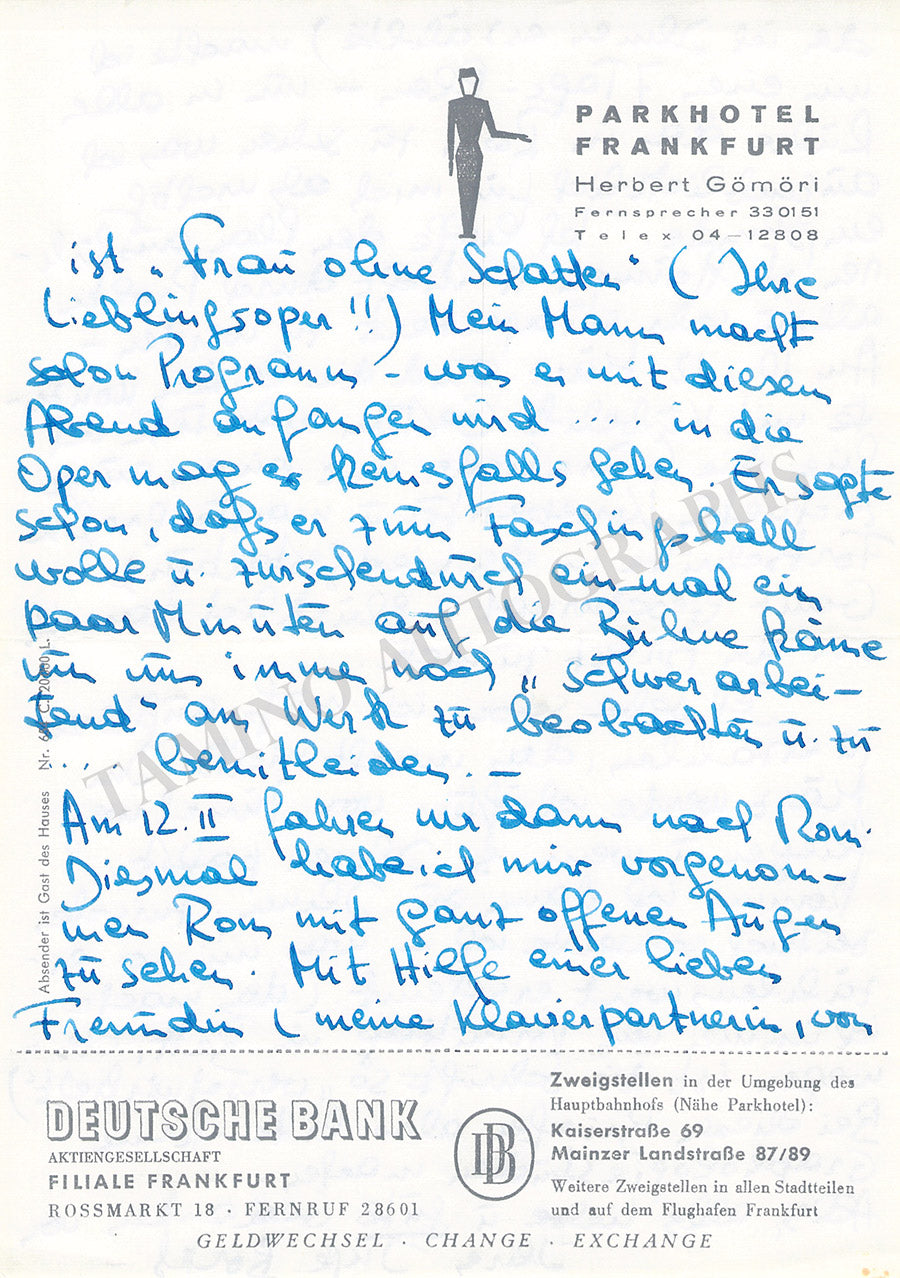 PARKHOTEL
FRANKFURT
Herbert Gömöri
Fernsprecher 330151
Telex 04—12808
ist „Frau ohne Schatten“ (Ihre
Lieblingsoper!!) Mein Mann macht
schon Programm – was er mit diesem
Abend anfangen wird ..... in die
Oper mag er keinesfalls gehen. Er sagte
schon, dass er zum Faschingsball
wolle u. zwischendurch einmal ein
paar Minuten auf die Bühne käme
um uns immer noch „schwer arbei-
tend“ am Werk zu beobachten u. zu
.... bemitleiden. –
Am 12. II fahren wir dann nach Rom.
Diesmal habe ich mir vorgenom-
men Rom mit ganz offenen Augen
zu sehen. Mit Hilfe einer lieben
Freundin (meine Klavierpartnerin, von
Absender ist Gast des Hauses Nr.
TAMINO AUTOGRAPHS
DEUTSCHE BANK
AKTIENGESELLSCHAFT
FILIALE FRANKFURT
ROSSMARKT 18 · FERNRUF 28601
DB
Zweigstellen in der Umgebung des
Hauptbahnhofs (Nähe Parkhotel):
Kaiserstraße 69
Mainzer Landstraße 87/89
Weitere Zweigstellen in allen Stadtteilen
und auf dem Flughafen Frankfurt
GELDWECHSEL · CHANGE · EXCHANGE